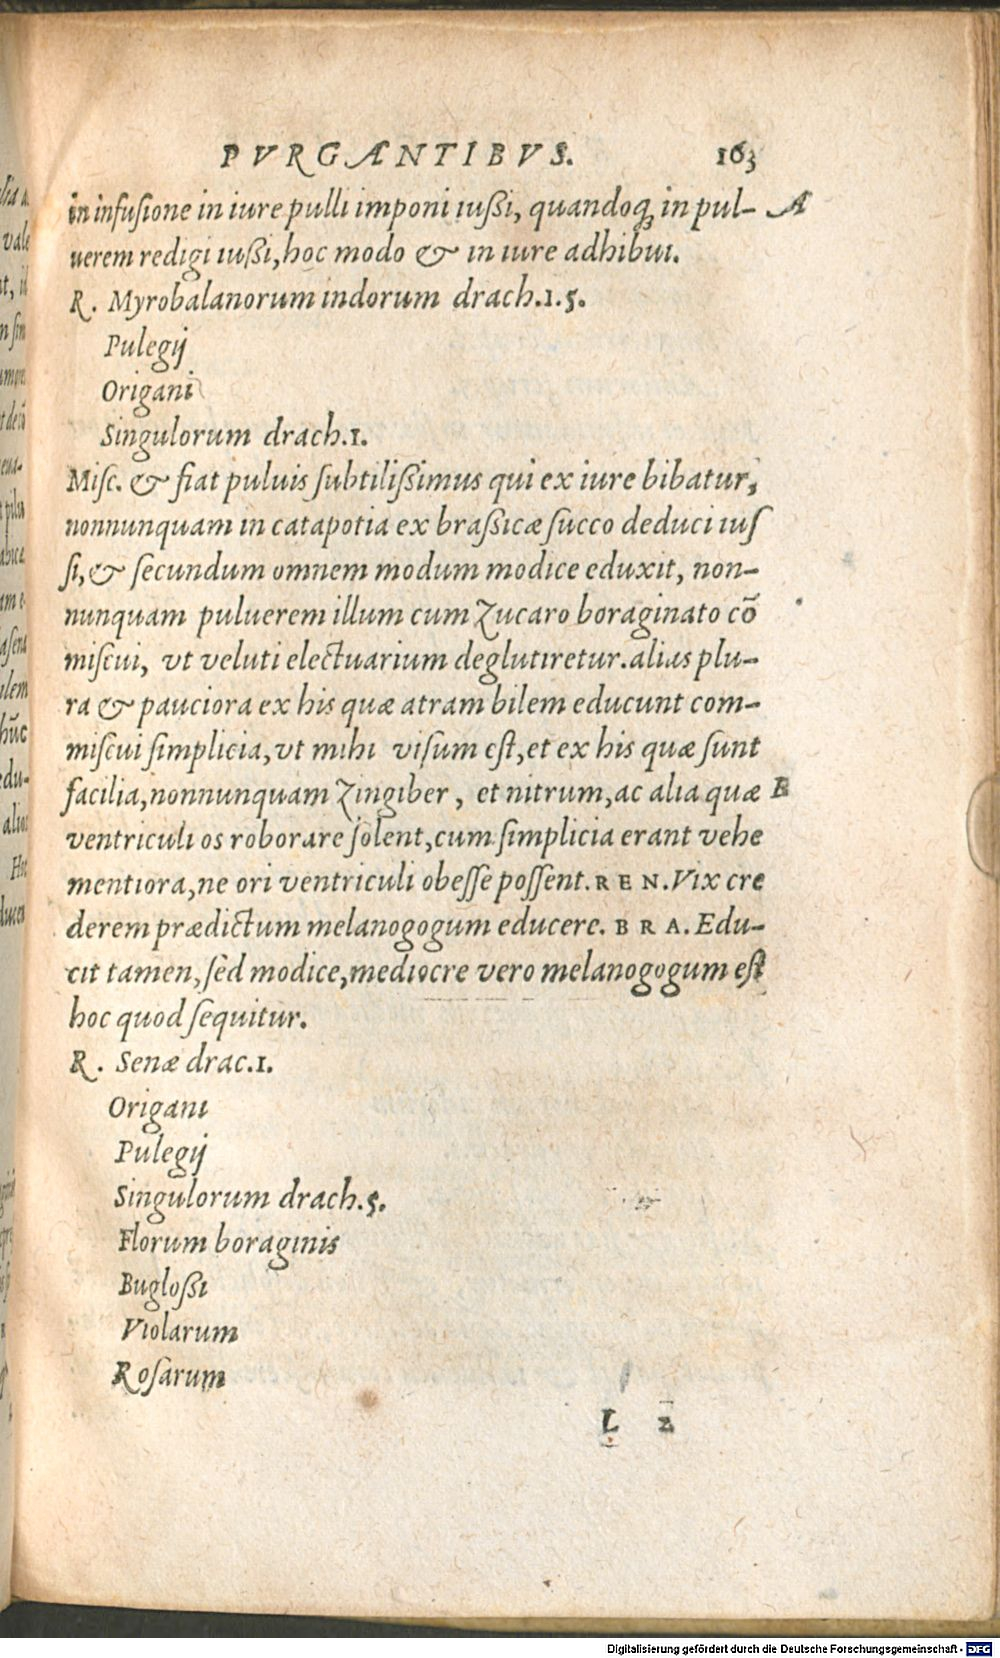 PVRGANTIBVS. 163
in infusione in iure pulli imponi iußi, quandoq; in pul- A
uerem redigi iußi, hoc modo & in iure adhibui.
R. Myrobalanorum indorum drach.1.5.
Pulegij
Origani
Singulorum drach.1.
Misc. & fiat puluis subtilißimus qui ex iure bibatur,
nonnunquam in catapotia ex braßicæ succo deduci ius
si, & secundum omnem modum modice eduxit, non-
nunquam puluerem illum cum Zucaro boraginato cõ
miscui, vt veluti electuarium deglutiretur. alias plu-
ra & pauciora ex his quæ atram bilem educunt com-
miscui simplicia, vt mihi visum est, et ex his quæ sunt
facilia, nonnunquam Zingiber, et nitrum, ac alia quæ B
ventriculi os roborare solent, cum simplicia erant vehe
mentiora, ne ori ventriculi obesse possent. REN. Vix cre
derem prædictum melanogogum educere. BRA. Edu-
cit tamen, sed modice, mediocre vero melanogogum est
hoc quod sequitur.
R. Senæ drac.1.
Origani
Pulegij
Singulorum drach.5.
Florum boraginis
Bugloßi
Violarum
Rosarum
L 2
Digitalisierung gefördert durch die Deutsche Forschungsgemeinschaft - DFG